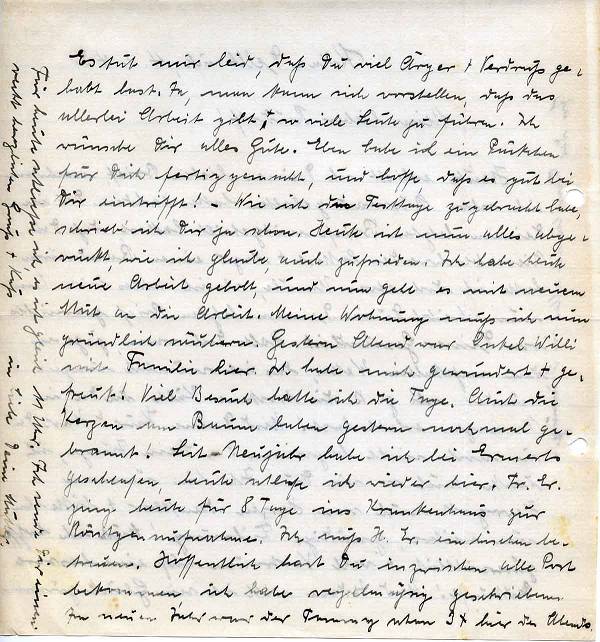 Es tut mir leid, daß Du viel Ärger + Verdruß ge-
habt hast. Ja, man kann sich vorstellen, daß das
allerlei Arbeit gibt, so viele Leute zu führen. Ich
wünsche Dir alles Gute. Eben habe ich ein Päckchen
für Dich fertiggemacht, und hoffe, daß es gut bei
Dir eintrifft! - Wie ich die Festtage zugebracht habe,
schrieb ich Dir ja schon. Heute ist nun alles abge-
rückt, wie ich glaube, auch zufrieden. Ich habe heute
neue Arbeit geholt, und nun geht es mit neuem
Mut an die Arbeit. Meine Wohnung muß ich nun
gründlich säubern. Gestern Abend war Onkel Willi
mit Familie hier. Ich habe mich gewundert + ge-
freut! Viel Besuch hatte ich die Tage. Auch die
Kerzen am Baum haben gestern nochmal ge-
brannt! Seit Neujahr habe ich bei Ermerts
geschlafen, heute schlafe ich wieder hier. Fr. Er.
ging heute für 8 Tage ins Krankenhaus zur
Röntgenaufnahme. Ich muß H. Er. ein bischen be-
treuen. Hoffentlich hast Du inzwischen alle Post
bekommen ich habe regelmäßig geschrieben.
Im neuen Jahr war der Tommy schon 3x hier des Abends.
Für heute schließe ich, es ist gleich 11 Uhr. Ich sende Dir einen
recht herzlichen Gruß + Kuß in Liebe Deine Mutter.